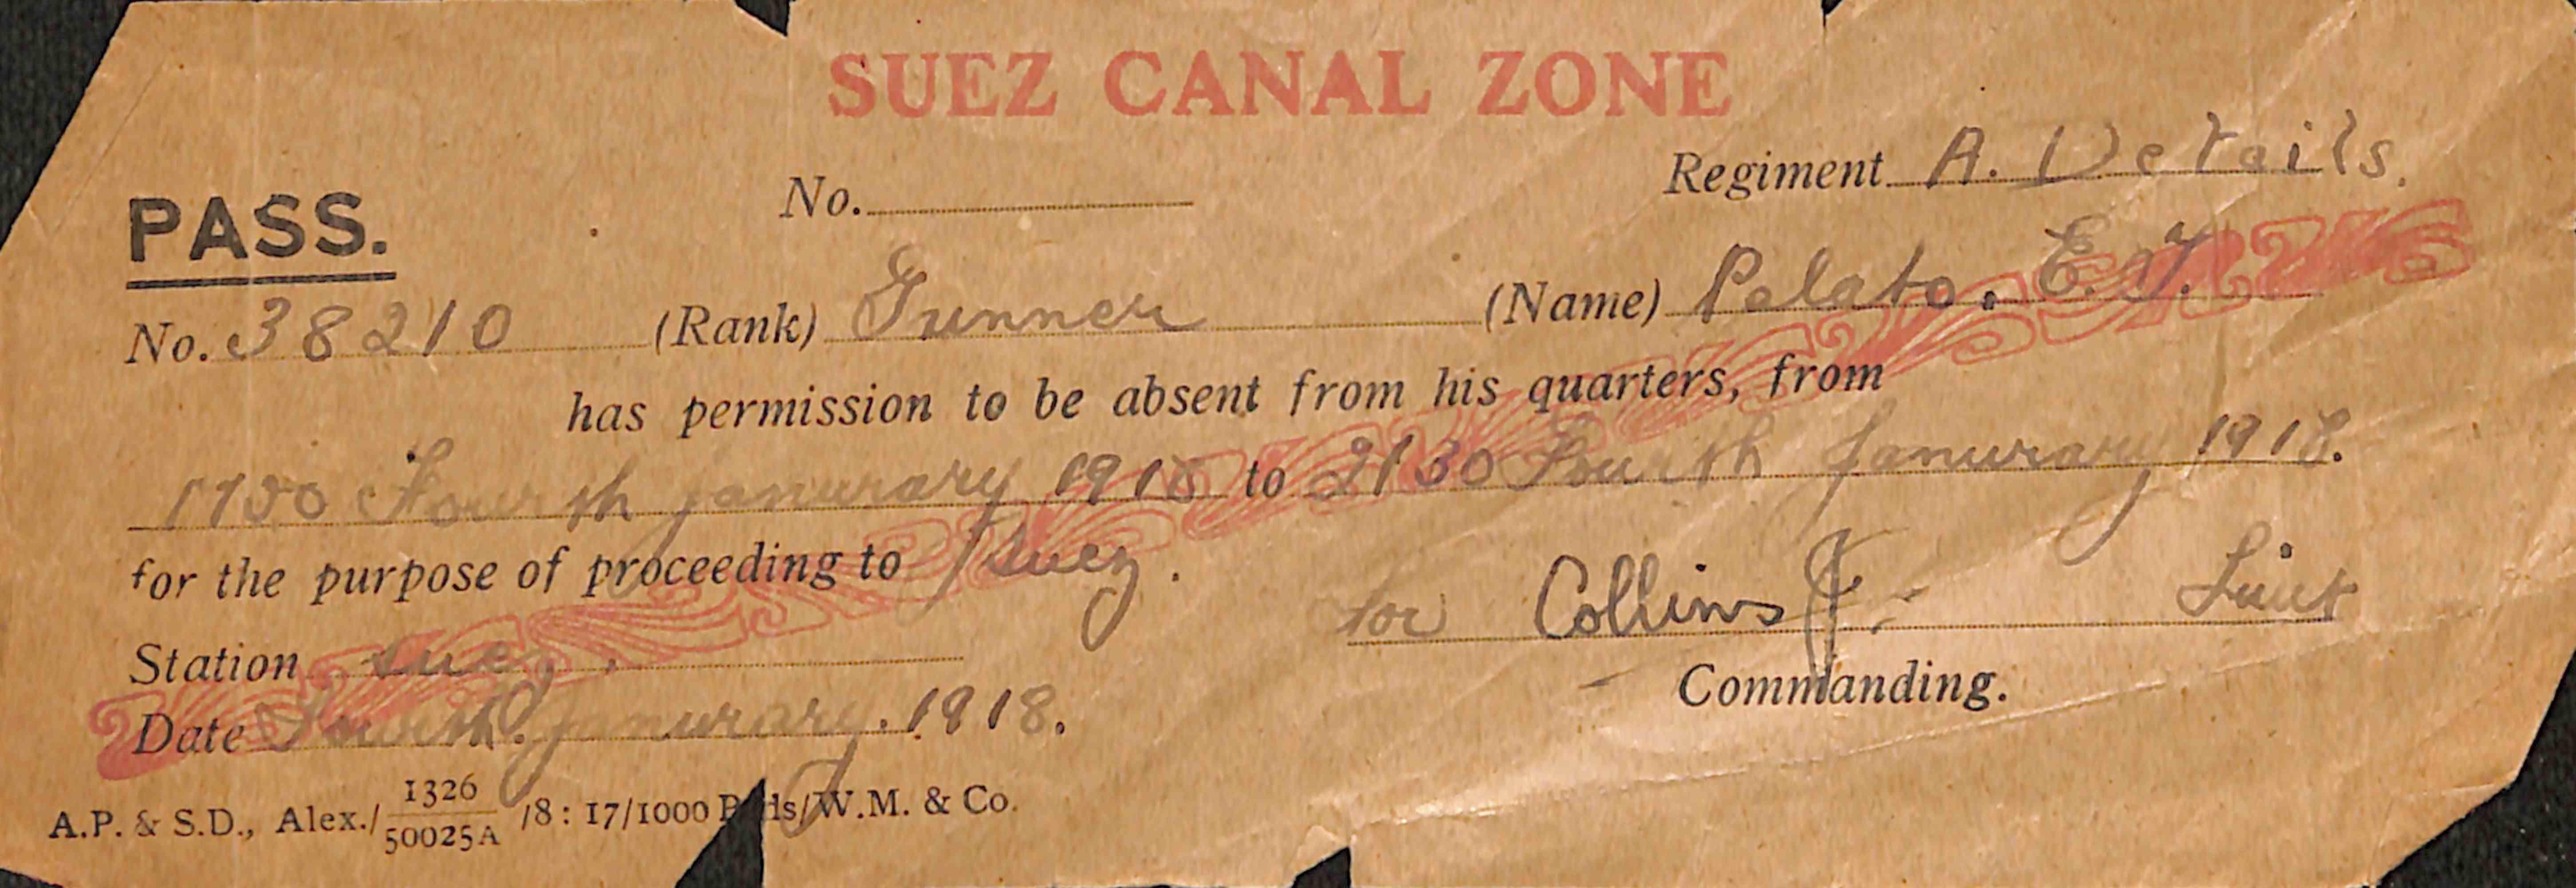 SUEZ CANAL ZONE
PASS.
No. Regiment A. Details.
No. 38210 (Rank) Gunner (Name) Polato. E.J.
has permission to be absent from his quarters, from
1730 Fourth janurary 1918 to 2130 Fourth Janurary 1918.
for the purpose of proceeding to Suez.
for Collins J. Liut
Station suez.
Commanding.
Date Fourth. janurary. 1918.
A.P. & S.D., Alex./1326/50025A/8: 17/1000 Pads/W.M. & Co.